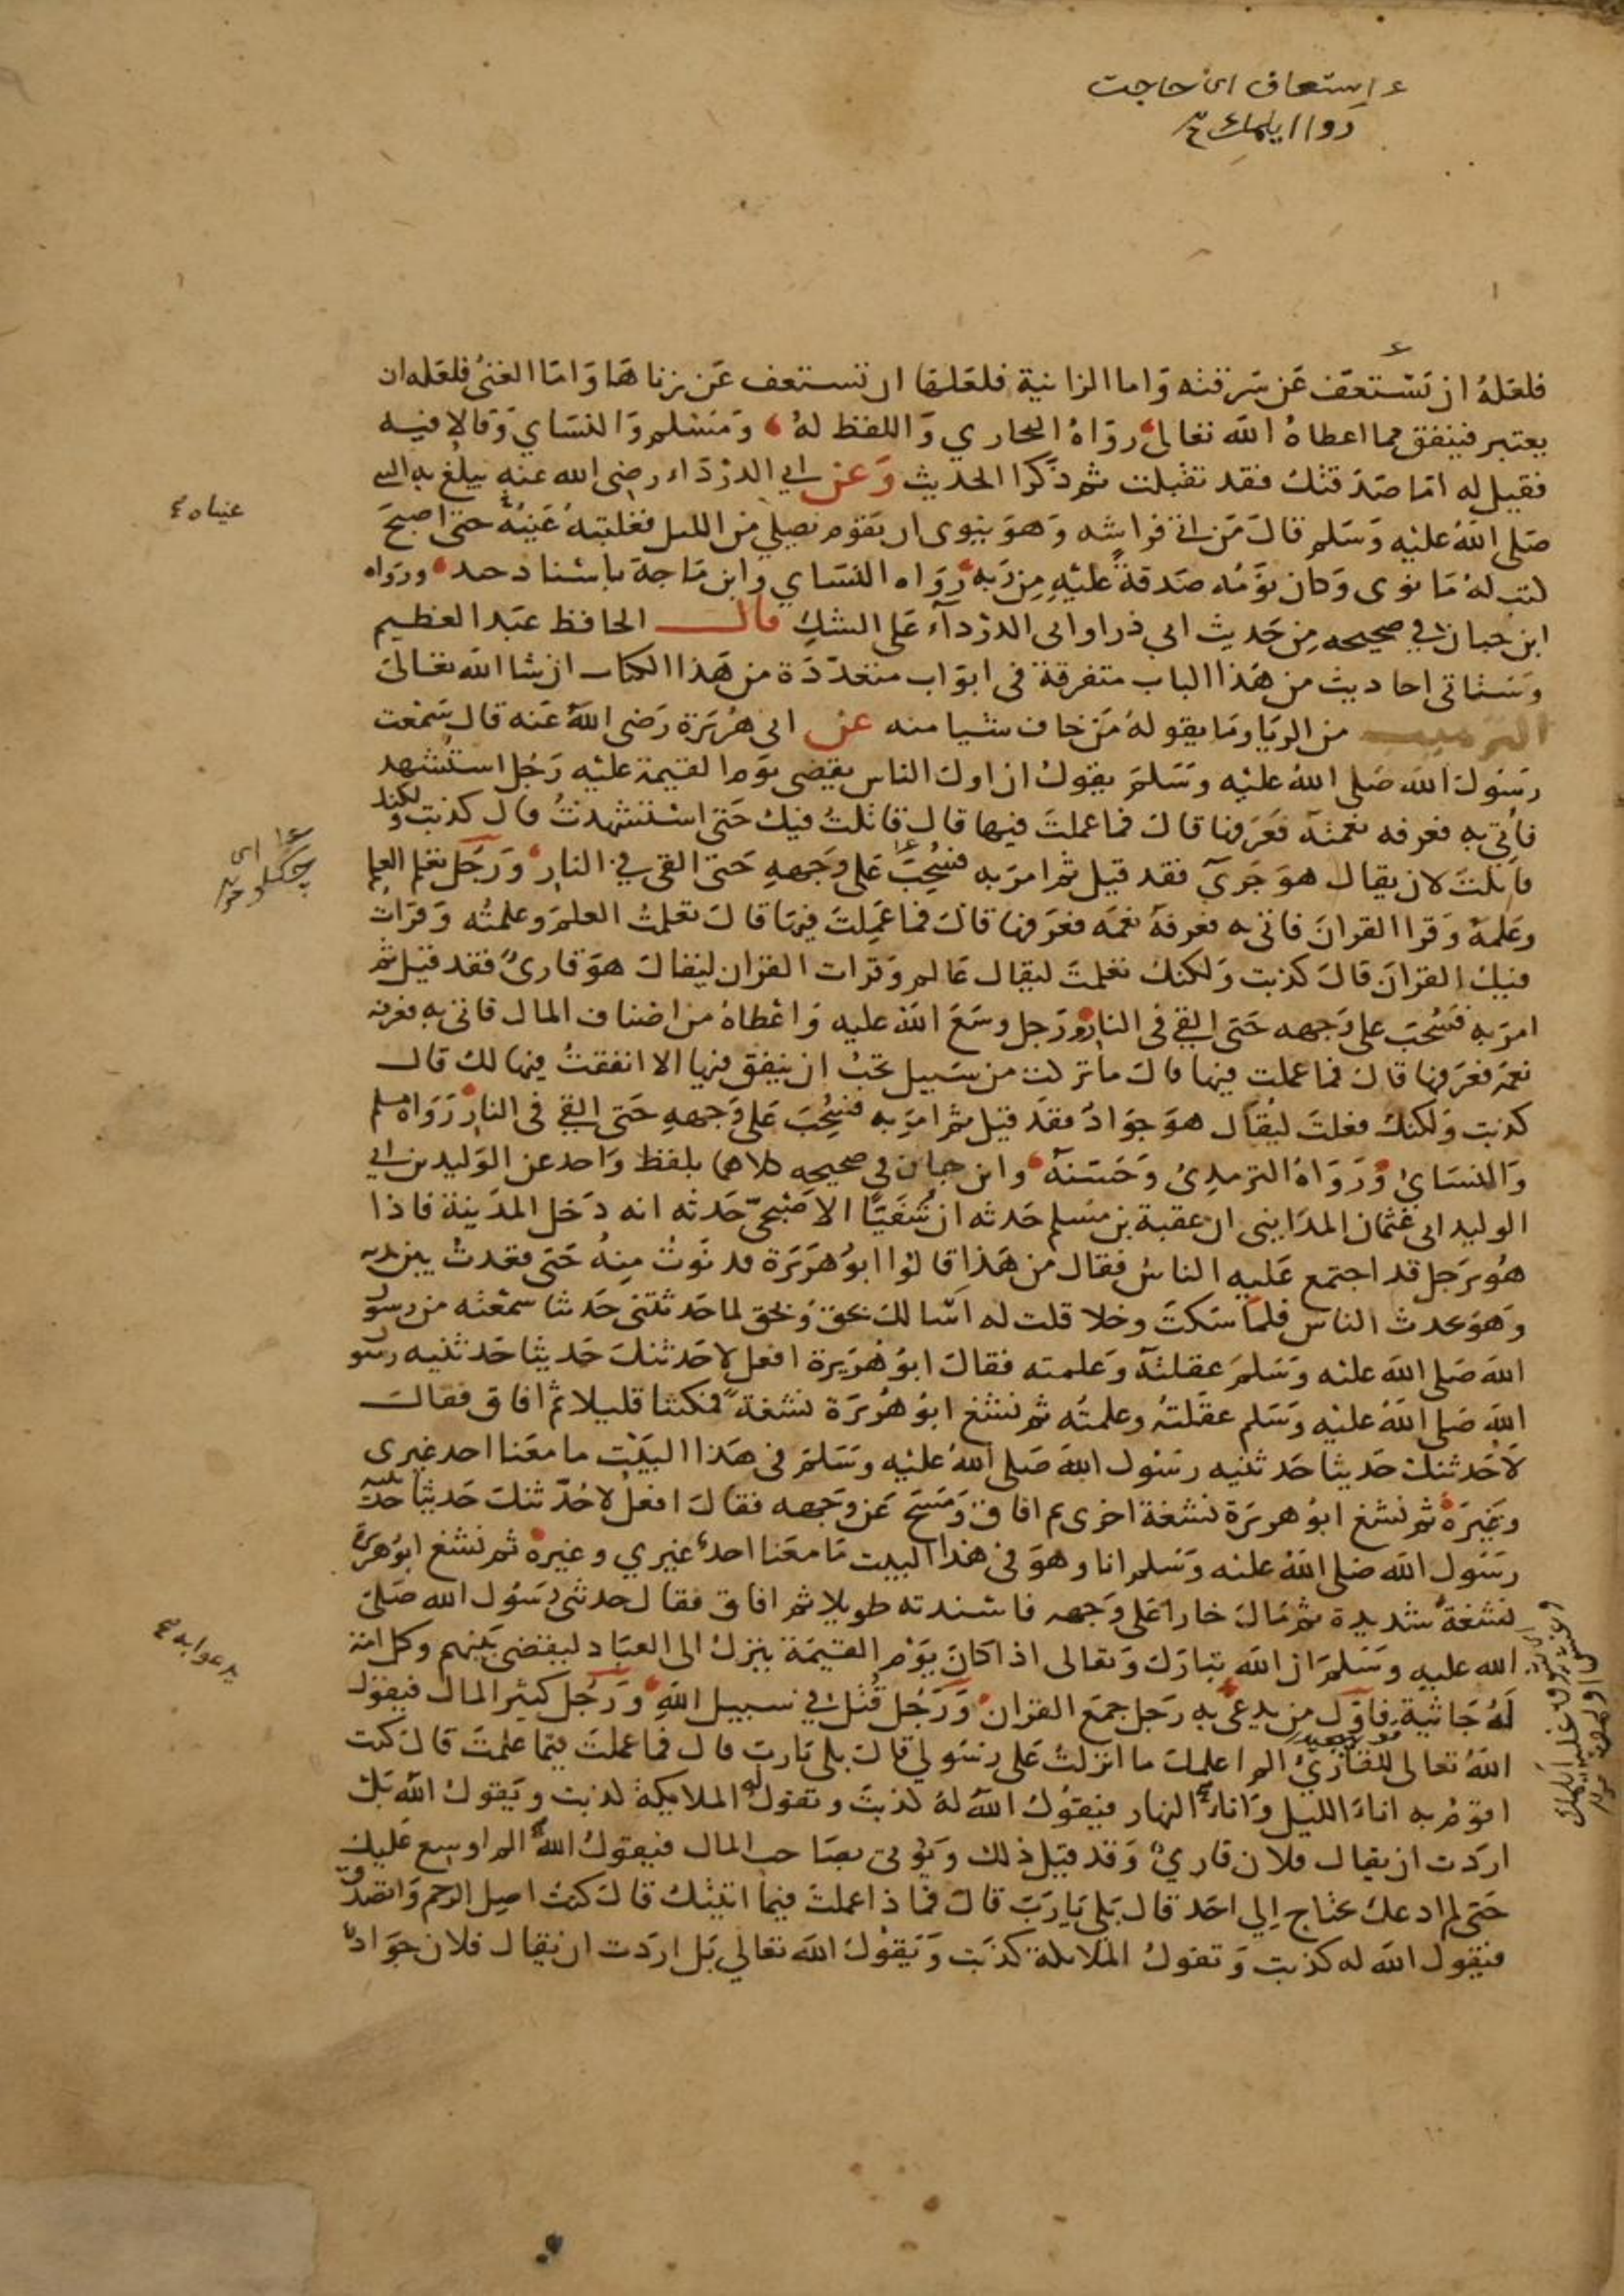 استعاف ای حاجت
روا ایلمك
فلعله ان تستعفف عن سرقته واما الزانية فلعلها ان تستعف عن زناها واما الغني فلعله ان
يعتبر فينفق مما اعطاه الله تعالى رواه البخاري واللفظ له ومسلم والنساي وقالا فيه
فقيل له اما صدقتك فقد تقبلت ثم ذكرا الحديث وعن ابي الدرداء رضى الله عنه يبلغ به النبي
صلى الله عليه وسلم قال من اتى فراشه وهو ينوى ان يقوم يصلي من الليل فغلبته عينه حتى اصبح
كتب له ما نوى وكان نومه صدقة عليه من ربه رواه النساي وابن ماجة باسناد جيد ورواه
ابن حبان في صحيحه من حديث ابي ذر او ابى الدرداء على الشك قال الحافظ عبد العظيم
وستاتى احاديث من هذا الباب متفرقة في ابواب متعددة من هذا الكتاب ان شا الله تعالى
الترهيب من الريا وما يقوله من خاف شيا منه عن ابى هريرة رضى الله عنه قال سمعت
رسول الله صلى الله عليه وسلم يقول ان اول الناس يقضى يوم القيمة عليه رجل استشهد
فأتي به فعرفه نعمته فعرفها قال فما عملت فيها قال قاتلت فيك حتى استشهدت قال كذبت ولكنك
قاتلت لان يقال هو جريء فقد قيل ثم امر به فسحب على وجهه حتى القى في النار ورجل تعلم العلم
وعلمه وقرا القران فاتى به فعرفه نعمه فعرفها قال فما عملت فيها قال تعلمت العلم وعلمته وقرات
فيك القران قال كذبت ولكنك تعلمت ليقال عالم وقرات القران ليقال هو قارئ فقد قيل ثم
امر به فسحب على وجهه حتى القي في النار ورجل وسع الله عليه واعطاه من اصناف المال فاتى به فعرفه
نعمه فعرفها قال فما عملت فيها قال ما تركت من سبيل تحب ان ينفق فيها الا انفقت فيها لك قال
كذبت ولكنك فعلت ليقال هو جواد فقد قيل ثم امر به فسحب على وجهه حتى القي في النار رواه مسلم
والنساي ورواه الترمذي وحسنه وابن حبان في صحيحه كلاهما بلفظ واحد عن الوليد بن ابي
الوليد ابى عثمان المدايني ان عقبة بن مسلم حدثه ان شفيا الاصبحي حدثه انه دخل المدينة فاذا
هو برجل قد اجتمع عليه الناس فقال من هذا قالوا ابو هريرة فدنوت منه حتى قعدت بين يديه
وهو يحدث الناس فلما سكت وخلا قلت له اسالك بحق وبحق لما حدثتنى حديثا سمعته من رسول
الله صلى الله عليه وسلم عقلته وعلمته فقال ابو هريرة افعل لاحدثنك حديثا حدثنيه رسول
الله صلى الله عليه وسلم عقلته وعلمته ثم نشغ ابو هريرة نشغة فمكثنا قليلا ثم افاق فقال
لاحدثنك حديثا حدثنيه رسول الله صلى الله عليه وسلم في هذا البيت ما معنا احد غيرى
وغيره ثم نشغ ابو هريرة نشغة اخرى ثم افاق ومسح عن وجهه فقال افعل لاحدثنك حديثا حدثنيه
رسول الله صلى الله عليه وسلم انا وهو في هذا البيت ما معنا احد غيري وغيره ثم نشغ ابو هريرة
نشغة شديدة ثم مال خارا على وجهه فاسندته طويلا ثم افاق فقال حدثني رسول الله صلى
الله عليه وسلم ان الله تبارك وتعالى اذا كان يوم القيمة ينزل الى العباد ليقضى بينهم وكل امة
له جاثية فاول من يدعى به رجل جمع القران ورجل قتل في سبيل الله ورجل كثير المال فيقول
الله تعالى للقارئ الم اعلمك ما انزلت على رسولي قال بلى يارب قال فما عملت فيما علمت قال كنت
اقوم به اناء الليل واناء النهار فيقول الله له كذبت وتقول له الملايكة كذبت ويقول الله بل
اردت ان يقال فلان قارئ وقد قيل ذلك ويؤتى بصاحب المال فيقول الله الم اوسع عليك
حتى لم ادعك تحتاج الي احد قال بلى يارب قال فماذا عملت فيما اتيتك قال كنت اصل الرحم واتصدق
فيقول الله له كذبت وتقول الملائكة كذبت ويقول الله تعالي بل اردت ان يقال فلان جواد
عيناه
يدعوا به